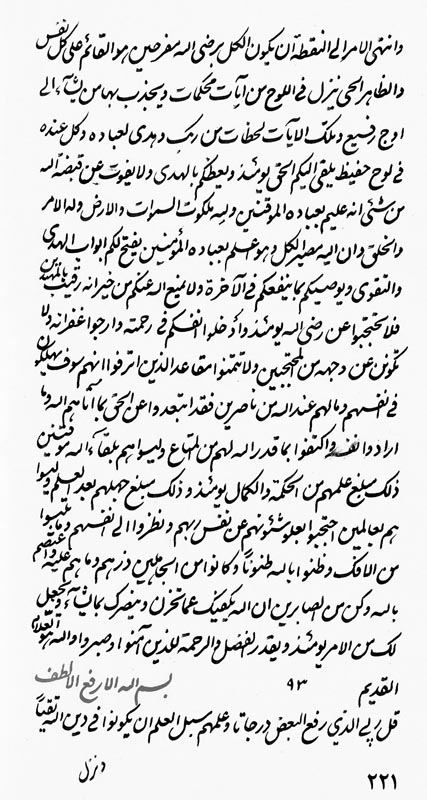 وانتهى الامر الى النقطة ان يكون الكل برضى الله مفرحين هو القائم على كل نفس
والظاهر الحى ينزل فى اللوح من آيات محكمات ويجذب بها من يشآء الى
اوج رفيع وتلك الآيات لحظات من ربك وهدى لعباده وكل عنده
فى لوح حفيظ يلقى اليكم الحق يومئذ ويعظكم بالهدى ولا يفوت عن قبضة الله
من شئ انه عليم بعباده الموقنين ولله ملكوت السموات والارض وله الامر
والخلق وان اليه مصير الكل وهو اعلم بعباده المؤمنين يفتح لكم ابواب الهدى
والتقوى ويوصيكم بما ينفعكم فى الآخرة ولا يمنع الله عنكم من خير انه رقيب بالمهتدين
فلا تحتجبوا عن رضى الله يومئذ وادخلوا انفسكم فى رحمته وارجوا غفرانه ولا
تكونن عن وجهه من المحتجبين ولا تتمنوا مقاعد الذين اترفوا انهم سوف يهلكون
فى انفسهم وما لهم عند الله من ناصرين فقد ابتعدوا عن الحق بما آتاهم الله وما
ارادوا واكتفوا بما قدر الله لهم من المتاع وليسوا هم بلقآء الله موقنين
ذلك مبلغ علمهم من الحكمة والكمال يومئذ وذلك مبلغ جهلهم بعد العلم وليسوا
هم بعالمين احتجبوا بعلو شئونهم عن نفس ربهم ونظروا الى انفسهم وما لبسوا
من الافك وظنوا بالله ظنونا وكانوا من الجاهلين ذرهم وما هم عليه واعتصم
بالله وكن من الصابرين ان الله يكفيك عما تحزن وينصرك بما يشآء ويجعل
لك من الامر يومئذ ويقدر الفضل والرحمة للذين آمنوا وصبروا والله هو العلام
القديم ٩٣ بسم الله الارفع الالطف
قل ربى الذى رفع البعض درجاتا وعلمهم سبل العلم ان يكونوا فى دين الله تقيا
ونزل
٢٢١